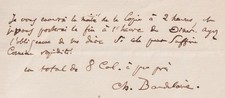 Je vous enverrai la moitié de la copie à 2 heures, et
vous porterai la fin à l'heure du dîner. Ayez
l'obligeance de me dire si cela peut suffire
comme rapidité.
en total de 8 Col. à peu près
Ch. Baudelaire